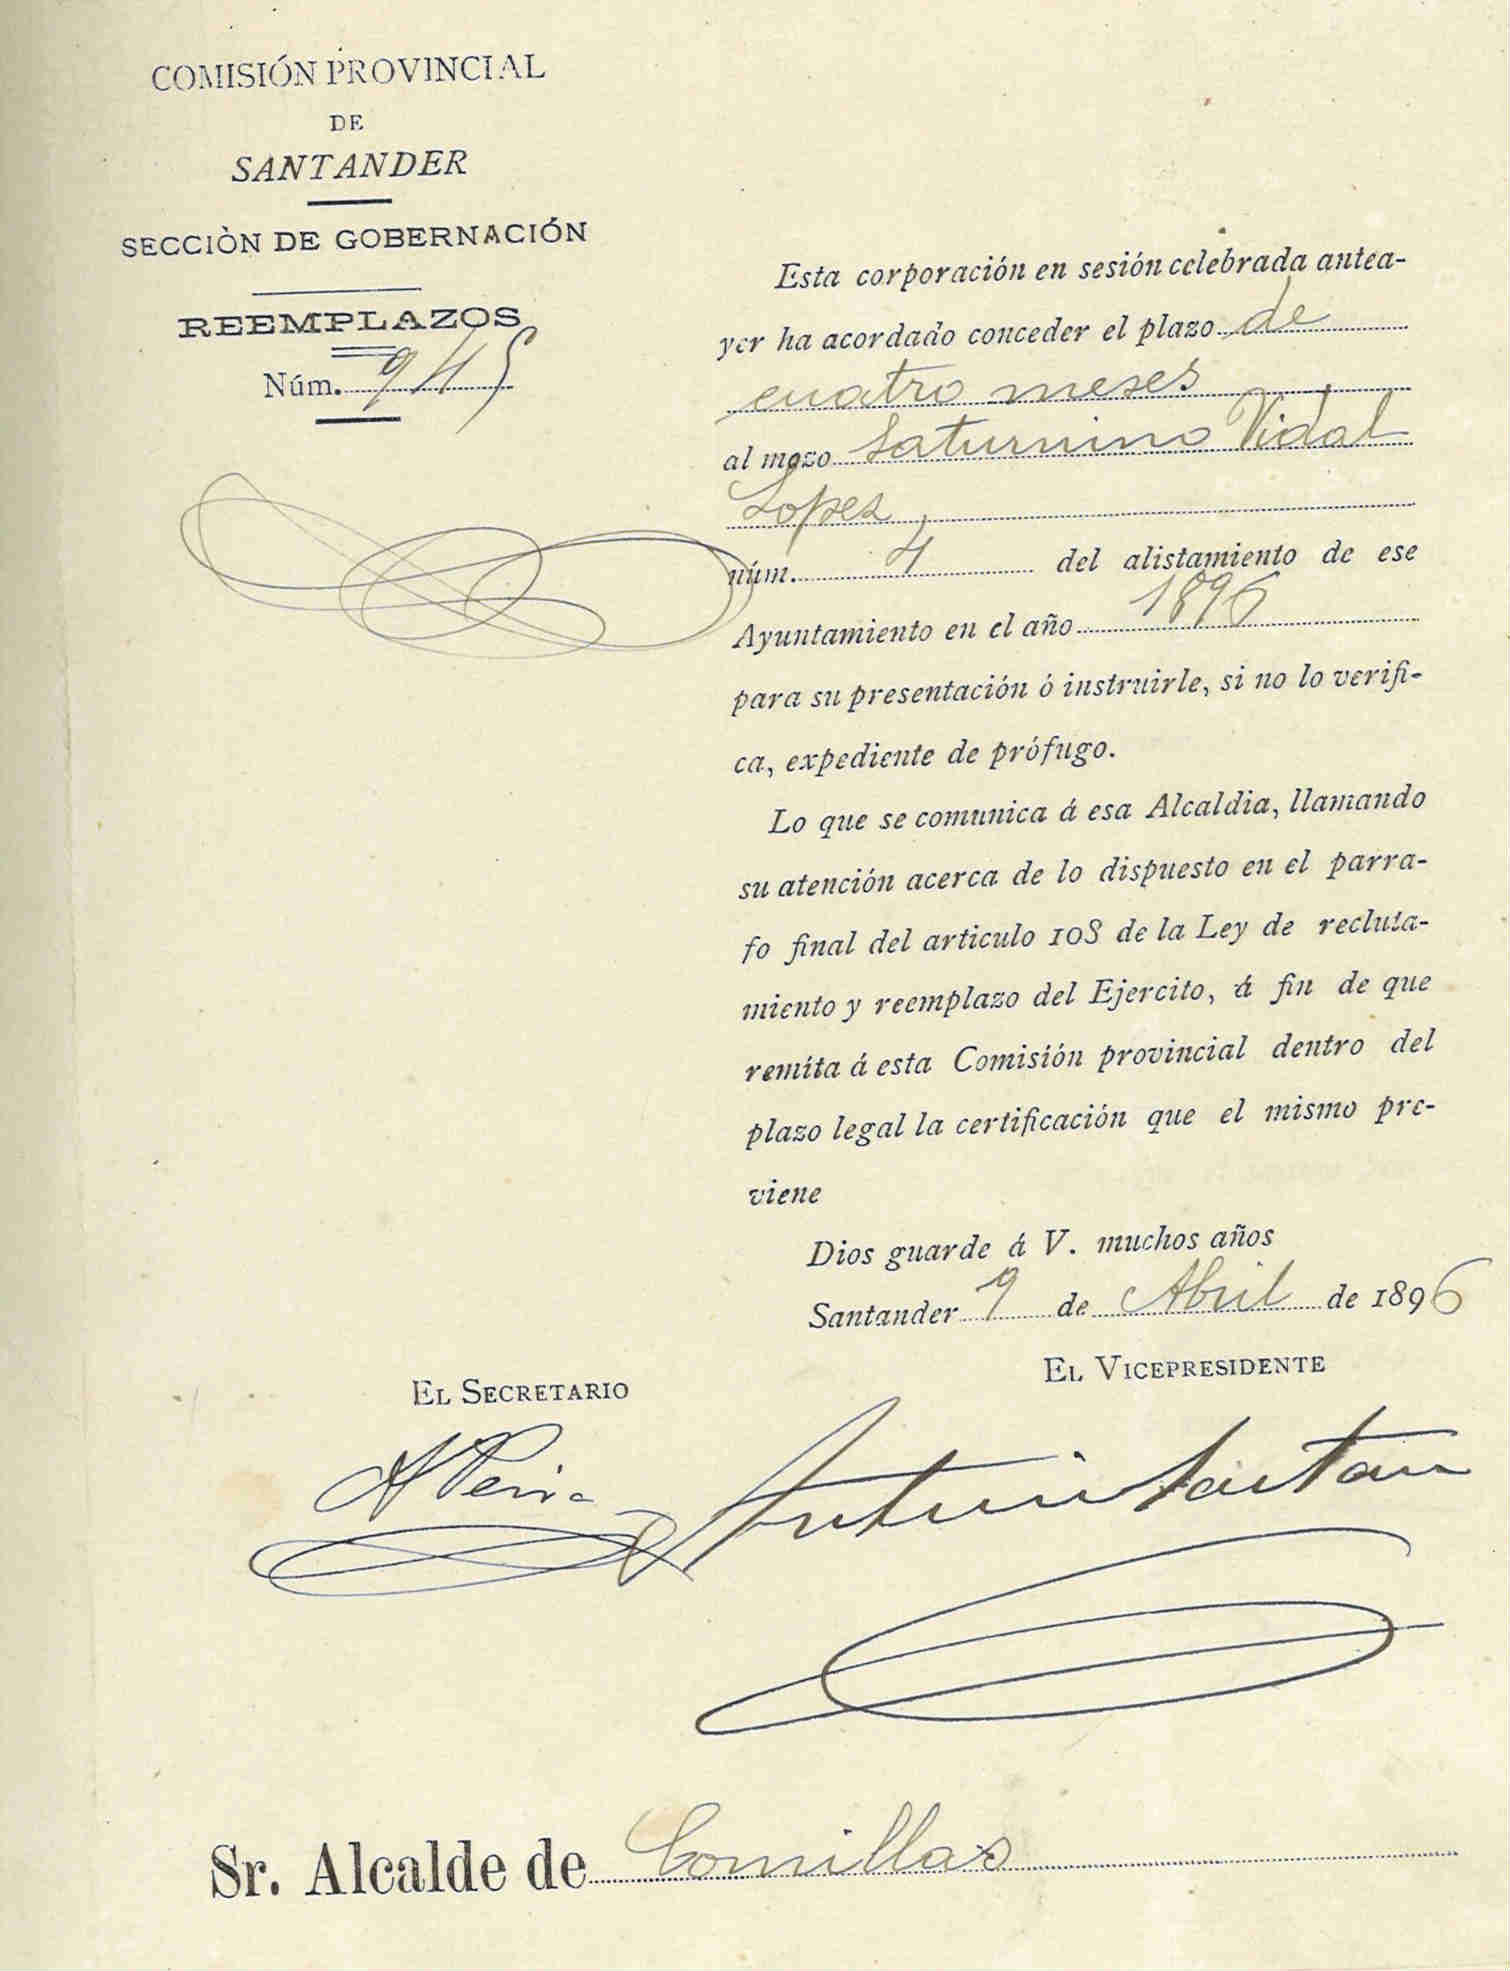 COMISIÓN PROVINCIAL
DE
SANTANDER
SECCIÒN DE GOBERNACIÓN
REEMPLAZOS
Núm. 945
Esta corporación en sesión celebrada antea-
yer ha acordado conceder el plazo de
cuatro meses
al mozo Saturnino Vidal
Lopez
núm. 4 del alistamiento de ese
Ayuntamiento en el año 1896
para su presentación ó instruirle, si no lo verifi-
ca, expediente de prófugo.
Lo que se comunica á esa Alcaldia, llamando
su atención acerca de lo dispuesto en el parra-
fo final del articulo 108 de la Ley de recluta-
miento y reemplazo del Ejercito, á fin de que
remita á esta Comisión provincial dentro del
plazo legal la certificación que el mismo pre-
viene
Dios guarde á V. muchos años
Santander 9 de Abril de 1896
EL VICEPRESIDENTE
EL SECRETARIO
Sr. Alcalde de Comillas